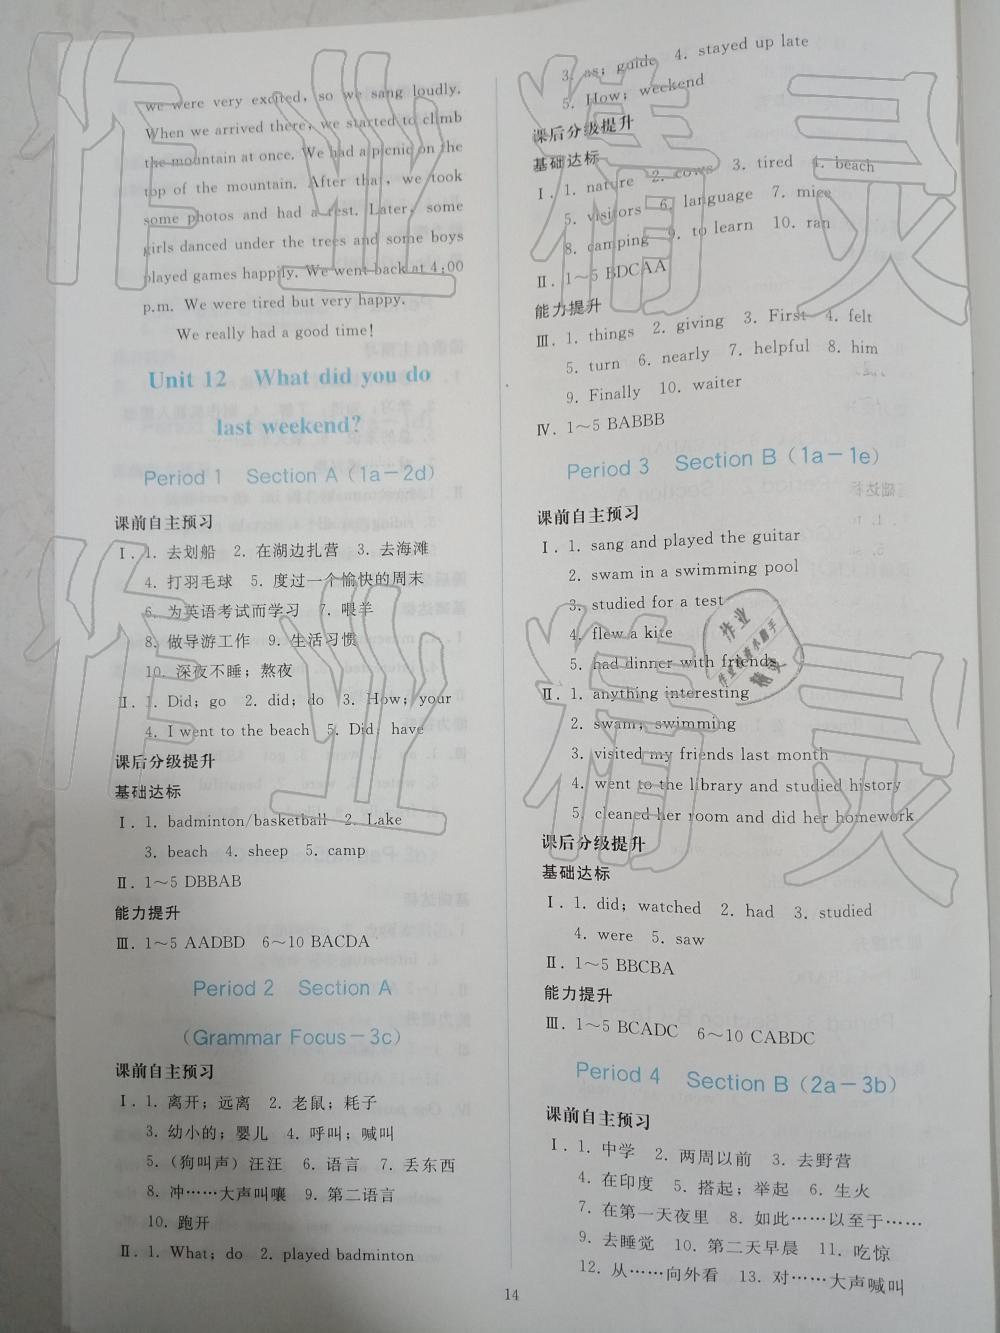 we were very excited, so we sang loudly.
When we arrived there, we started to climb
the mountain at once. We had a picnic on the
top of the mountain. After that, we took
some photos and had a rest. Later, some
girls danced under the trees and some boys
played games happily. We went back at 4:00
p.m. We were tired but very happy.
We really had a good time!
Unit 12 What did you do
last weekend?
Period 1 Section A (1a-2d)
课前自主预习
Ⅰ. 1. 去划船 2. 在湖边扎营 3. 去海滩
4. 打羽毛球 5. 度过一个愉快的周末
6. 为英语考试而学习 7. 喂羊
8. 做导游工作 9. 生活习惯
10. 深夜不睡;熬夜
Ⅱ. 1. Did; go 2. did; do 3. How; your
4. I went to the beach 5. Did; have
课后分级提升
基础达标
Ⅰ. 1. badminton/basketball 2. Lake
3. beach 4. sheep 5. camp
Ⅱ. 1~5 DBBAB
能力提升
Ⅲ. 1~5 AADBD 6~10 BACDA
Period 2 Section A
(Grammar Focus-3c)
课前自主预习
Ⅰ. 1. 离开;远离 2. 老鼠;耗子
3. 幼小的;婴儿 4. 呼叫;喊叫
5. (狗叫声)汪汪 6. 语言 7. 丢东西
8. 冲……大声叫嚷 9. 第二语言
10. 跑开
Ⅱ. 1. What; do 2. played badminton
3. as; guide 4. stayed up late
5. How; weekend
课后分级提升
基础达标
Ⅰ. 1. nature 2. cows 3. tired 4. beach
5. visitors 6. language 7. mice
8. camping 9. to learn 10. ran
Ⅱ. 1~5 BDCAA
能力提升
Ⅲ. 1. things 2. giving 3. First 4. felt
5. turn 6. nearly 7. helpful 8. him
9. Finally 10. waiter
Ⅳ. 1~5 BABBB
Period 3 Section B (1a-1e)
课前自主预习
Ⅰ. 1. sang and played the guitar
2. swam in a swimming pool
3. studied for a test
4. flew a kite
5. had dinner with friends
Ⅱ. 1. anything interesting
2. swam; swimming
3. visited my friends last month
4. went to the library and studied history
5. cleaned her room and did her homework
课后分级提升
基础达标
Ⅰ. 1. did; watched 2. had 3. studied
4. were 5. saw
Ⅱ. 1~5 BBCBA
能力提升
Ⅲ. 1~5 BCADC 6~10 CABDC
Period 4 Section B (2a-3b)
课前自主预习
Ⅰ. 1. 中学 2. 两周以前 3. 去野营
4. 在印度 5. 搭起;举起 6. 生火
7. 在第一天夜里 8. 如此……以至于……
9. 去睡觉 10. 第二天早晨 11. 吃惊
12. 从……向外看 13. 对……大声喊叫
14
作业精灵
作业精灵
作业
精灵